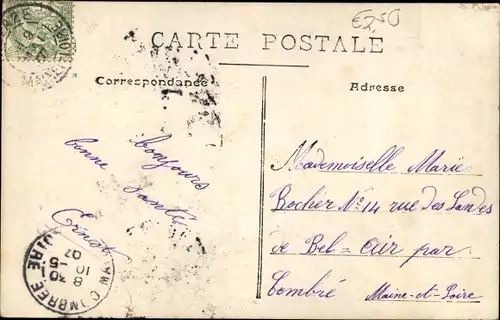 €2,50
CARTE POSTALE
Correspondance
Adresse
bonjours
bonne santé
Ernest
Mademoiselle Marie
Rocher No 14 rue des Landes
de Bel=air par
Combré Maine-et-Loire
COMBRÉE
8
10 -5
07